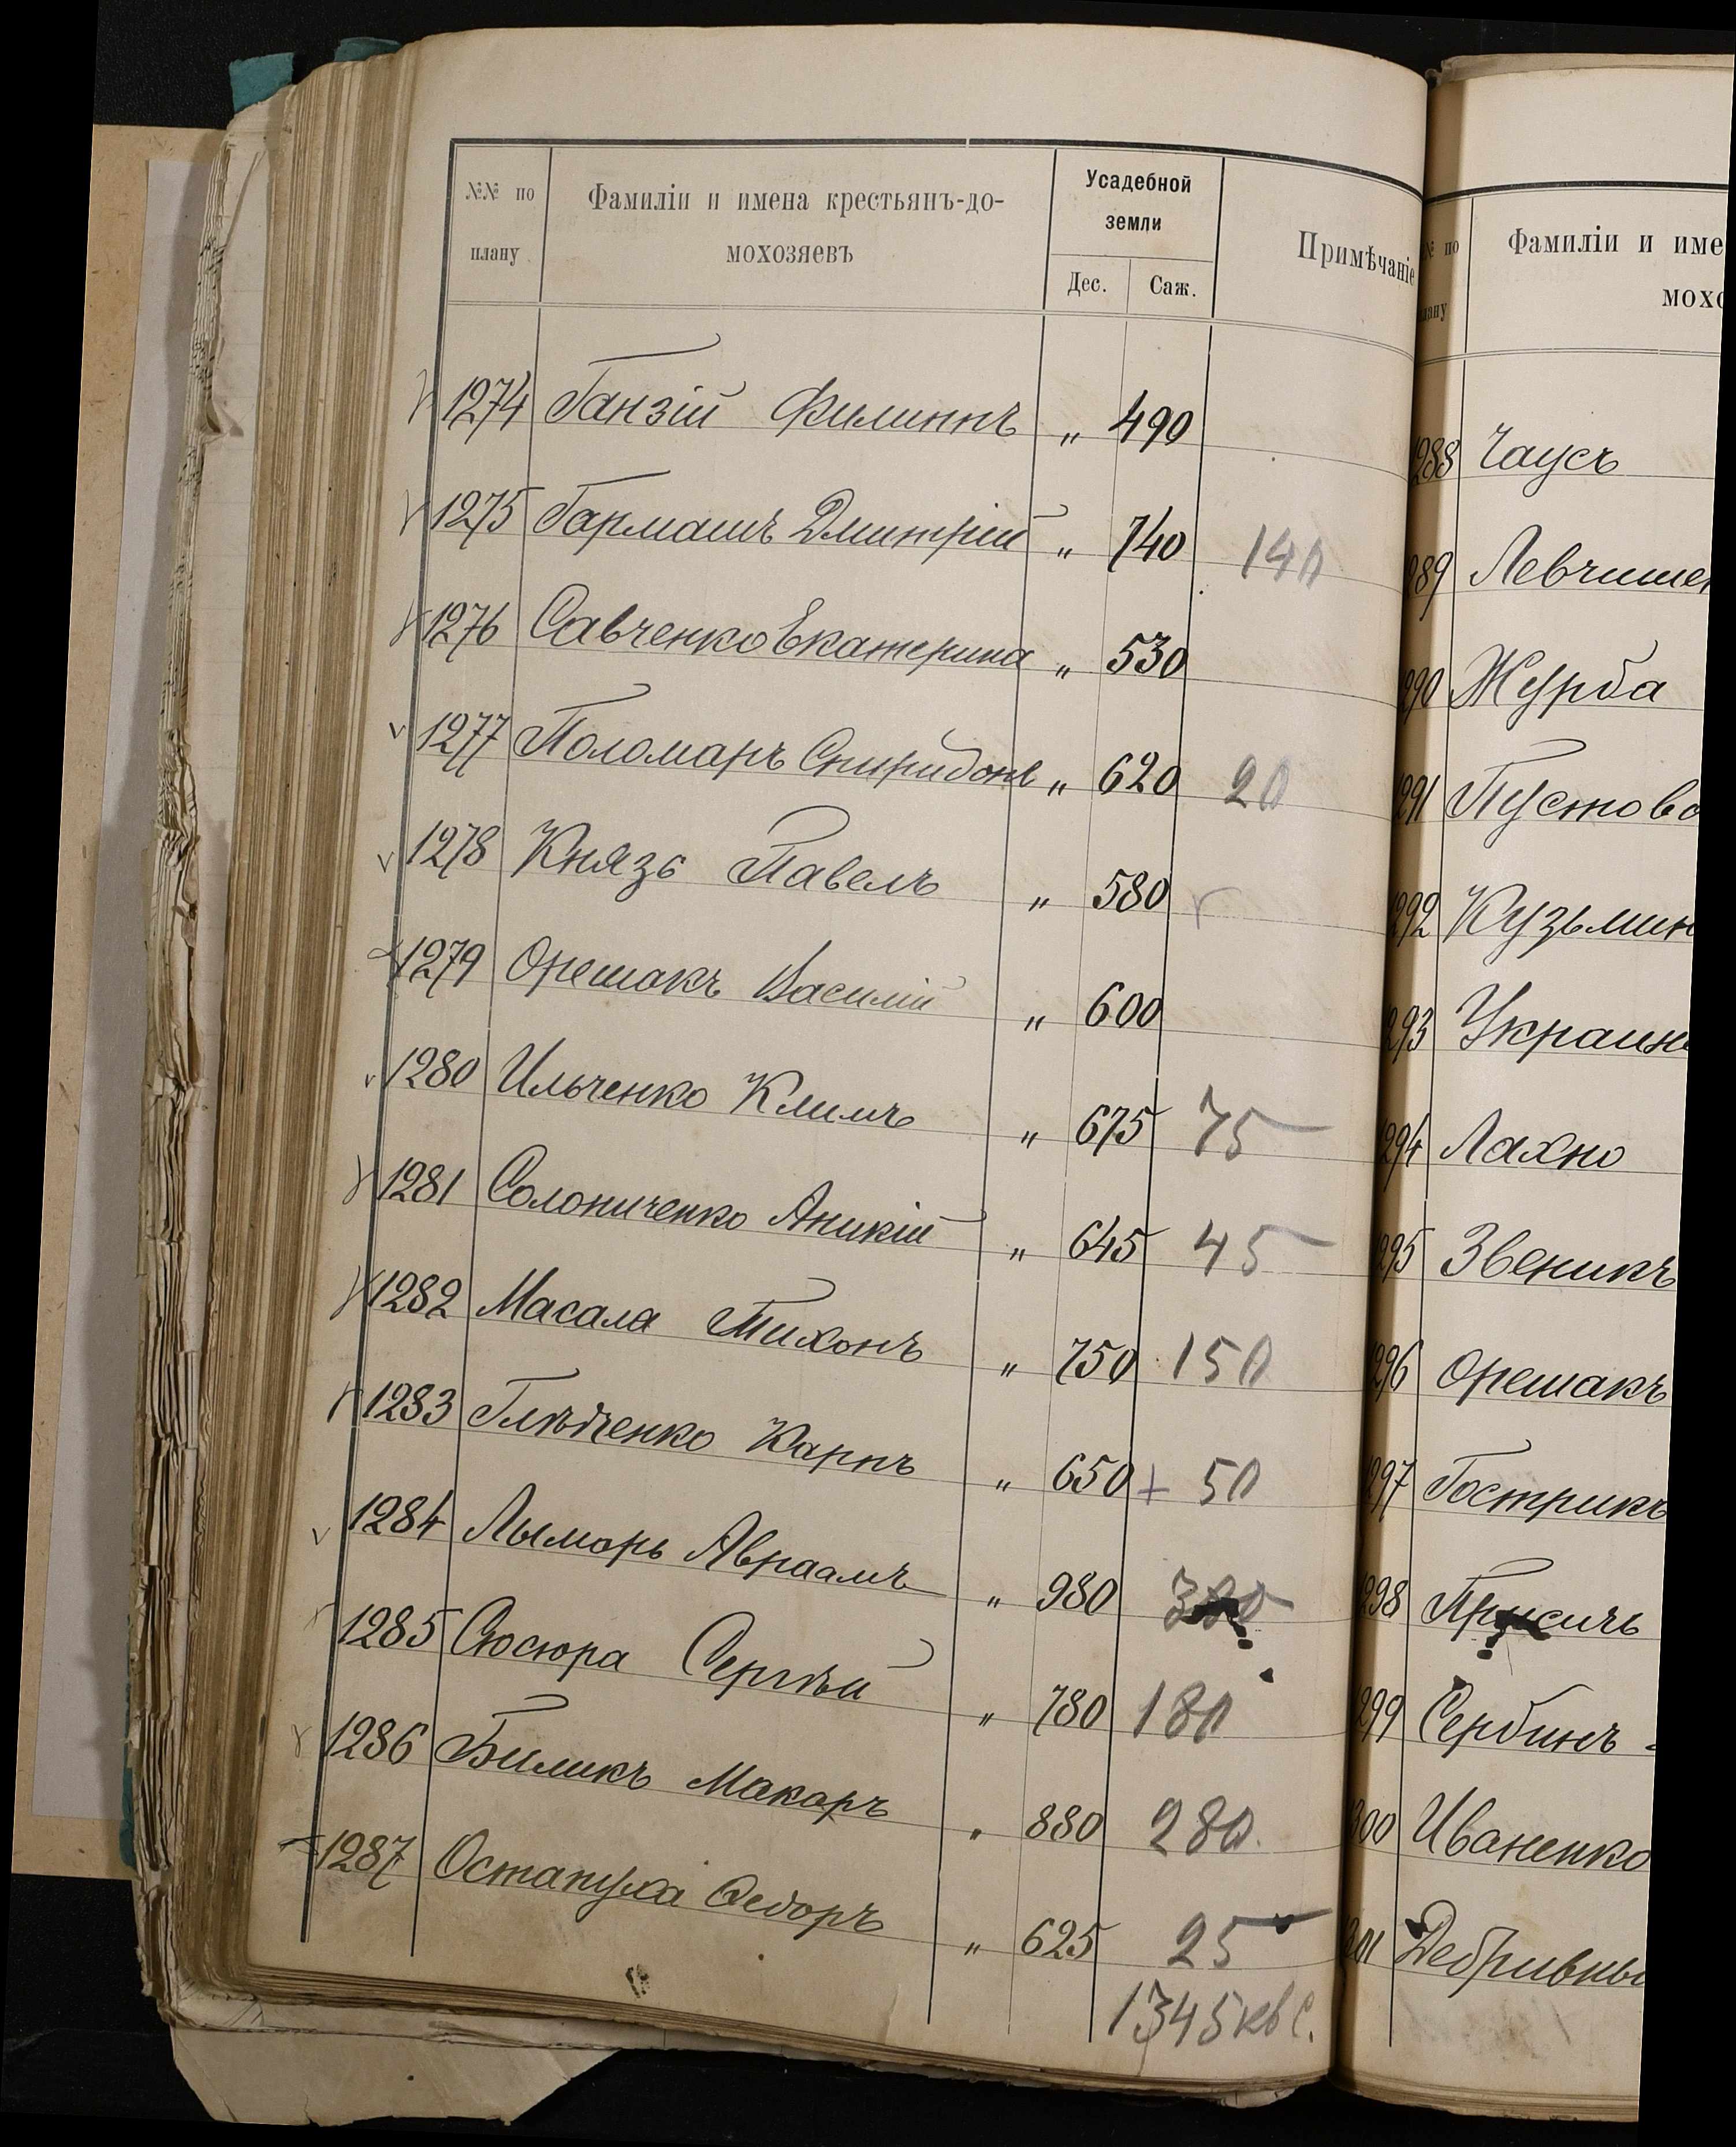 №№ по плану Фамиліи и имена крестьянъ-до-мохозяевъ Усадебной земли Дес. Саж. Примѣчаніе
1274 Ганзій Филиппъ " 490
1275 Гармашъ Дмитрій " 740 140
1276 Савченко Екатерина " 530
1277 Поломаръ Спиридонъ " 620 20
1278 Князь Павелъ " 580
1279 Орешакъ Василій " 600
1280 Ильченко Климъ " 675 75
1281 Солониченко Аникій " 645 45
1282 Масала Тихонъ " 750 150
1283 Глѣпченко Карпъ " 650 + 50
1284 Лыморь Авраамъ " 980
1285 Сюсюра Сергѣй " 780 180
1286 Биликъ Макаръ " 880 280
1287 Остапуха Федоръ " 625 25
1345 кв с.
№ по плану Фамиліи и име
мохо
288 Чаусъ
289 Левчишен
290 Журба
291 Пустово
292 Кузьмин
293 Украин
294 Лахно
295 Звеникъ
296 Орешакъ
297 Гострикъ
298
299 Сербинъ
300 Иваненко
301 Дебривны